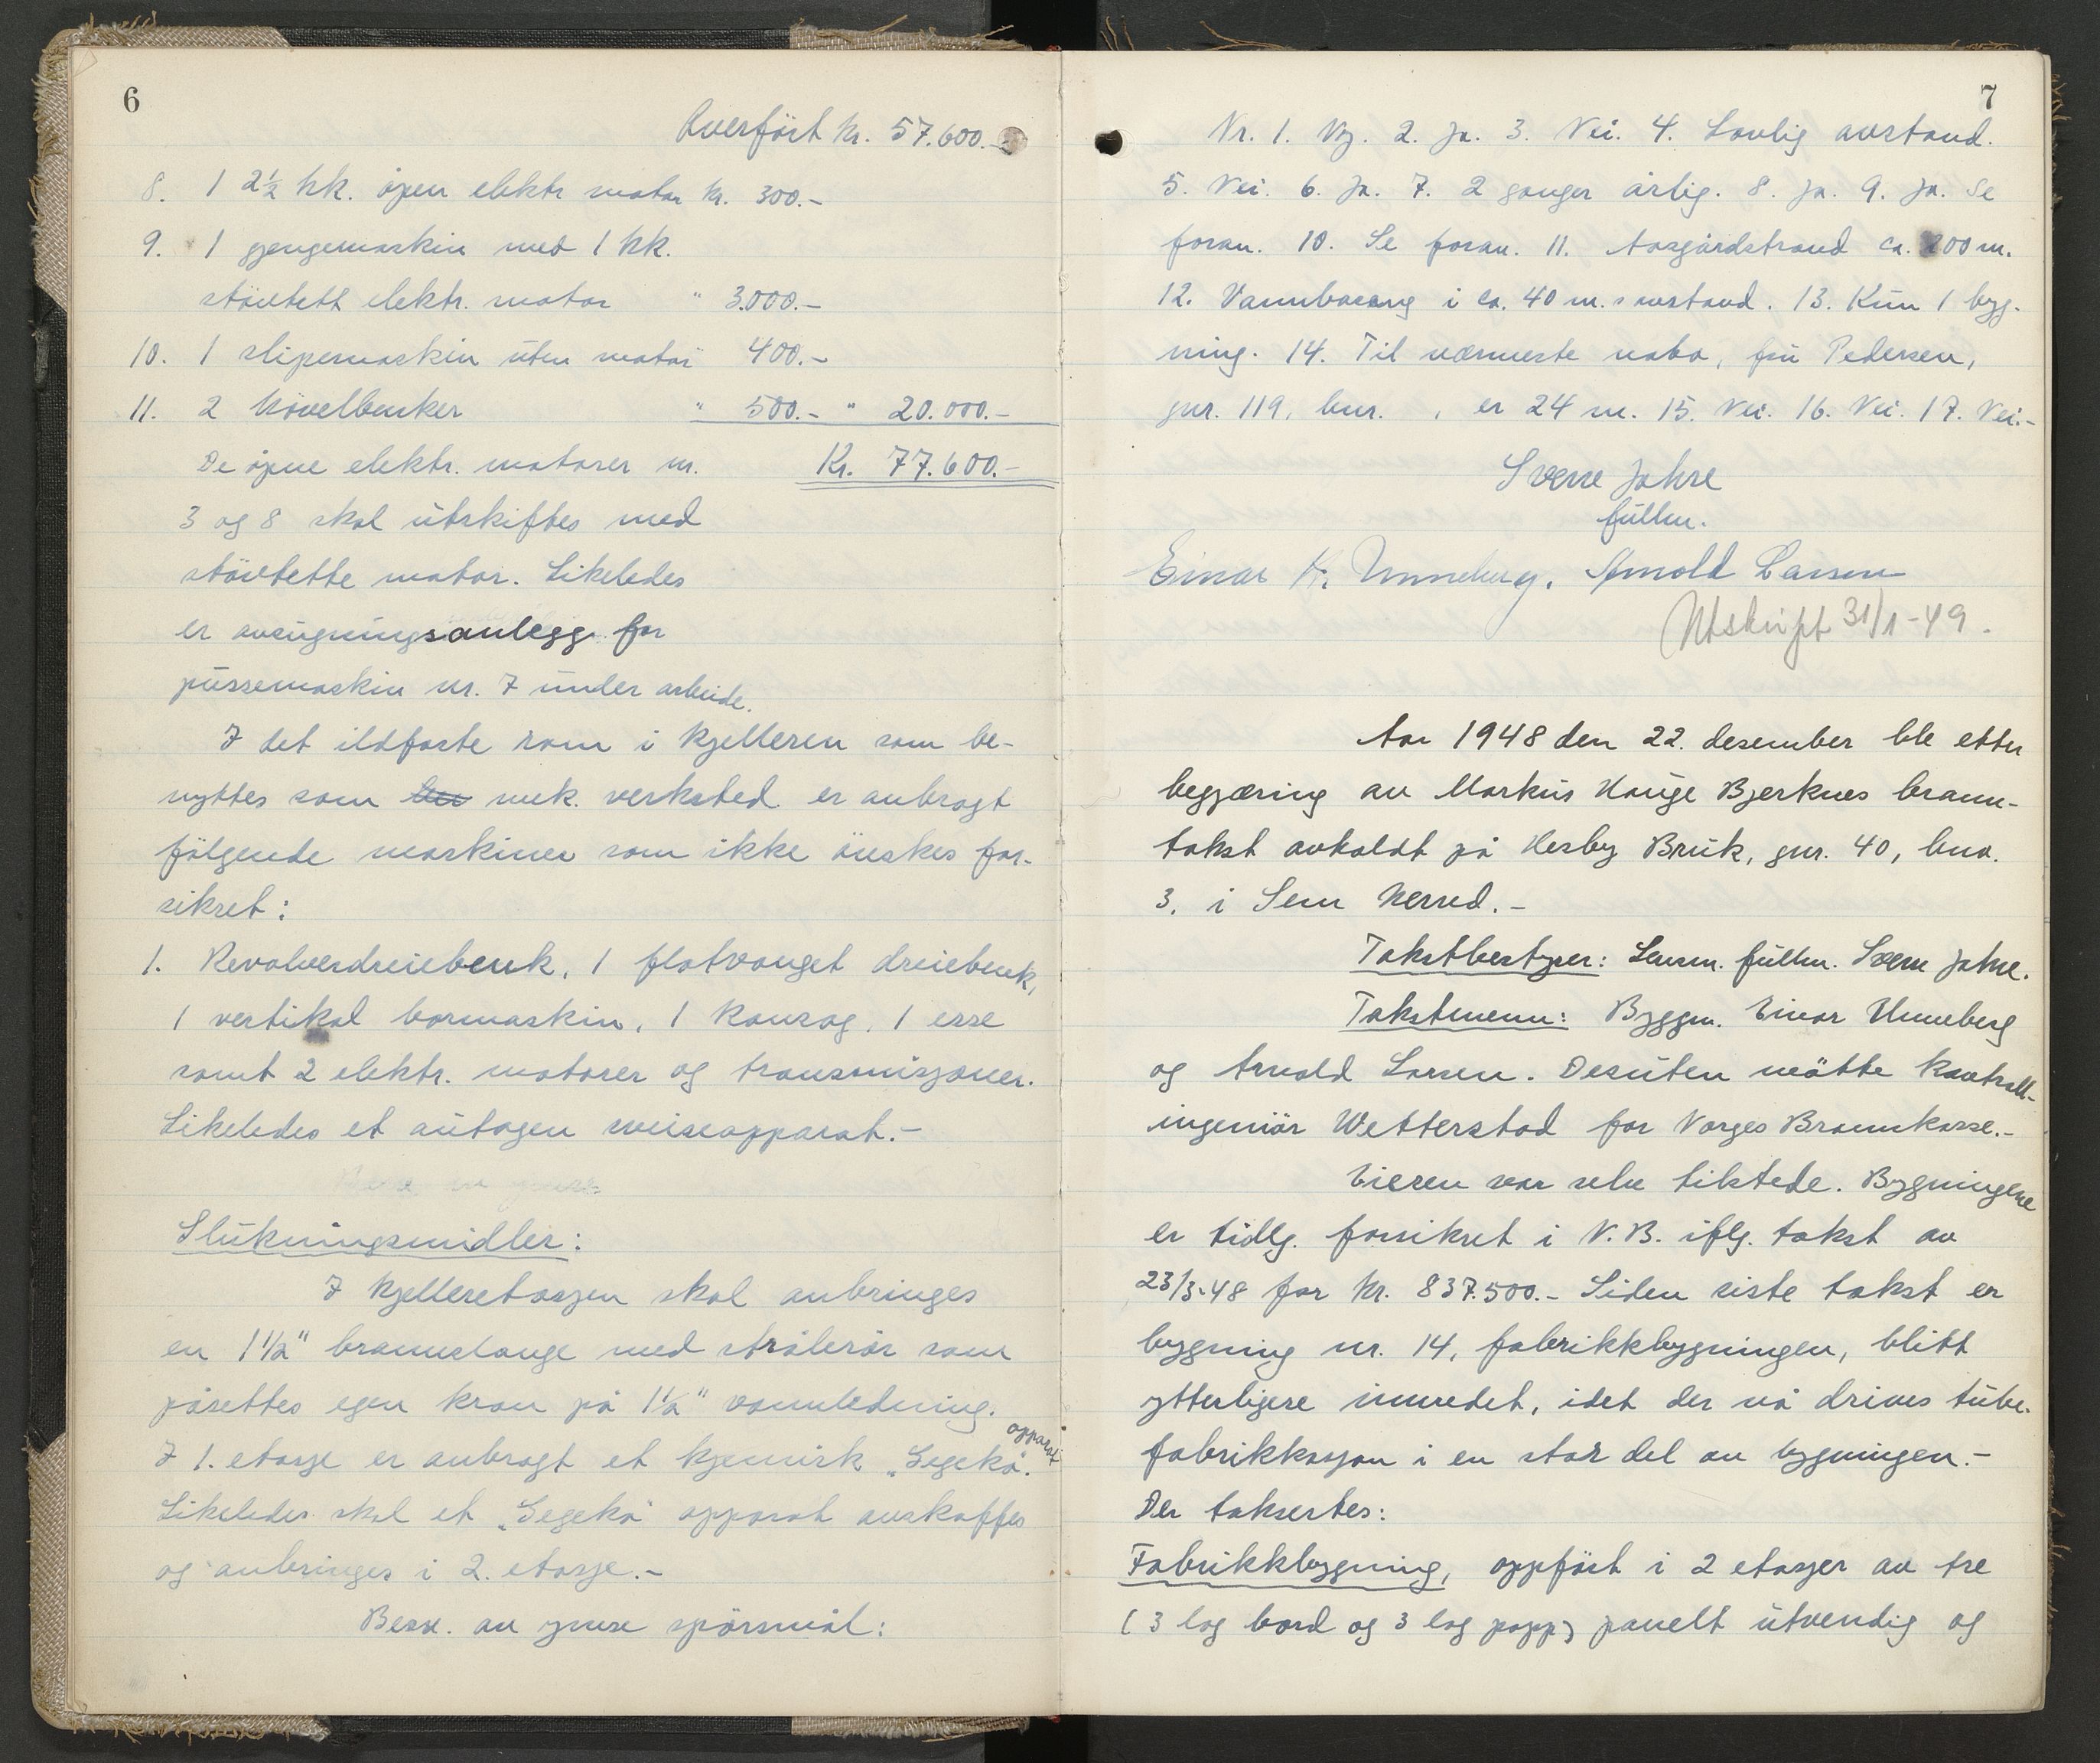 6
Overført kr. 57.600.-
8. 1 2½ hk. åpen elektr motor kr. 300.-
9. 1 gjengemaskin med 1 hk.
støvtett elektr. motor " 3.000.-
10. 1 slipemaskin uten motor " 400.-
11. 2 høvelbenker " 500.- " 20.000.-
De åpne elektr. motorer nr. Kr. 77.600.-
3 og 8 skal utskiftes med
støvtette motor. Likeledes
er avsugningsanlegg for
pussemaskin nr. 7 under arbeide.
I det ildfaste rom i kjelleren som be-
nyttes som mek. verksted er anbragt
følgende maskiner som ikke ønskes for-
sikret:
1. Revolverdreiebenk, 1 flatvanget dreiebenk,
1 vertikal bormaskin, 1 kansag, 1 esse
samt 2 elektr. motorer og transmisjoner.
Likeledes et autogen sveiseapparat.-
Slukningsmidler:
I kjelleretasjen skal anbringes
en 1½" brannslange med strålerør som
påsettes egen kran på 1½" vannledning.
I 1. etasje er anbragt et kjemisk "Gegekå" apparat.
Likeledes skal et "Gegekå" apparat anskaffes
og anbringes i 2. etasje.-
Besv. av gense spørsmål:
7
Nr. 1. Ny. 2. Ja. 3. Nei. 4. Lovlig avstand.
5. Nei. 6. Ja. 7. 2 ganger årlig. 8. Ja. 9. Ja. Se
foran. 10. Se foran. 11. Aasgårdstrand ca. 200 m.
12. Vannbasseng i ca. 40 m.s avstand. 13. Kun 1 byg-
ning. 14. Til nærmeste nabo, fru Pedersen,
gnr. 119, bnr. , er 24 m. 15. Nei. 16. Nei. 17. Nei.-
Sverre Jahre
fullm.
Einar H. Unneberg. Arnold Larsen
Utskrift 31/1-49.
Aar 1948 den 22. desember ble etter
begjæring av Markus Hauge Bjerknes brann-
takst avholdt på Hesby Bruk, gnr. 40, bnr.
3, i Sem herred.-
Takstbestyrer: Lensm. fullm. Sverre Jahre.
Takstmenn: Byggm. Einar Unneberg
og Arnold Larsen. Desuten møtte kontroll-
ingeniør Wetterstad for Norges Brannkasse.-
Eieren var selv tilstede. Bygningene
er tidlg. forsikret i N.B. iflg. takst av
23/3-48 for kr. 837.500.- Siden siste takst er
bygning nr. 14, fabrikkbygningen, blitt
ytterligere innredet, idet der nå drives tube-
fabrikkasjon i en stor del av bygningen.-
Der taksertes:
Fabrikkbygning, oppført i 2 etasjer av tre
(3 lag bord og 3 lag papp) panelt utvendig og